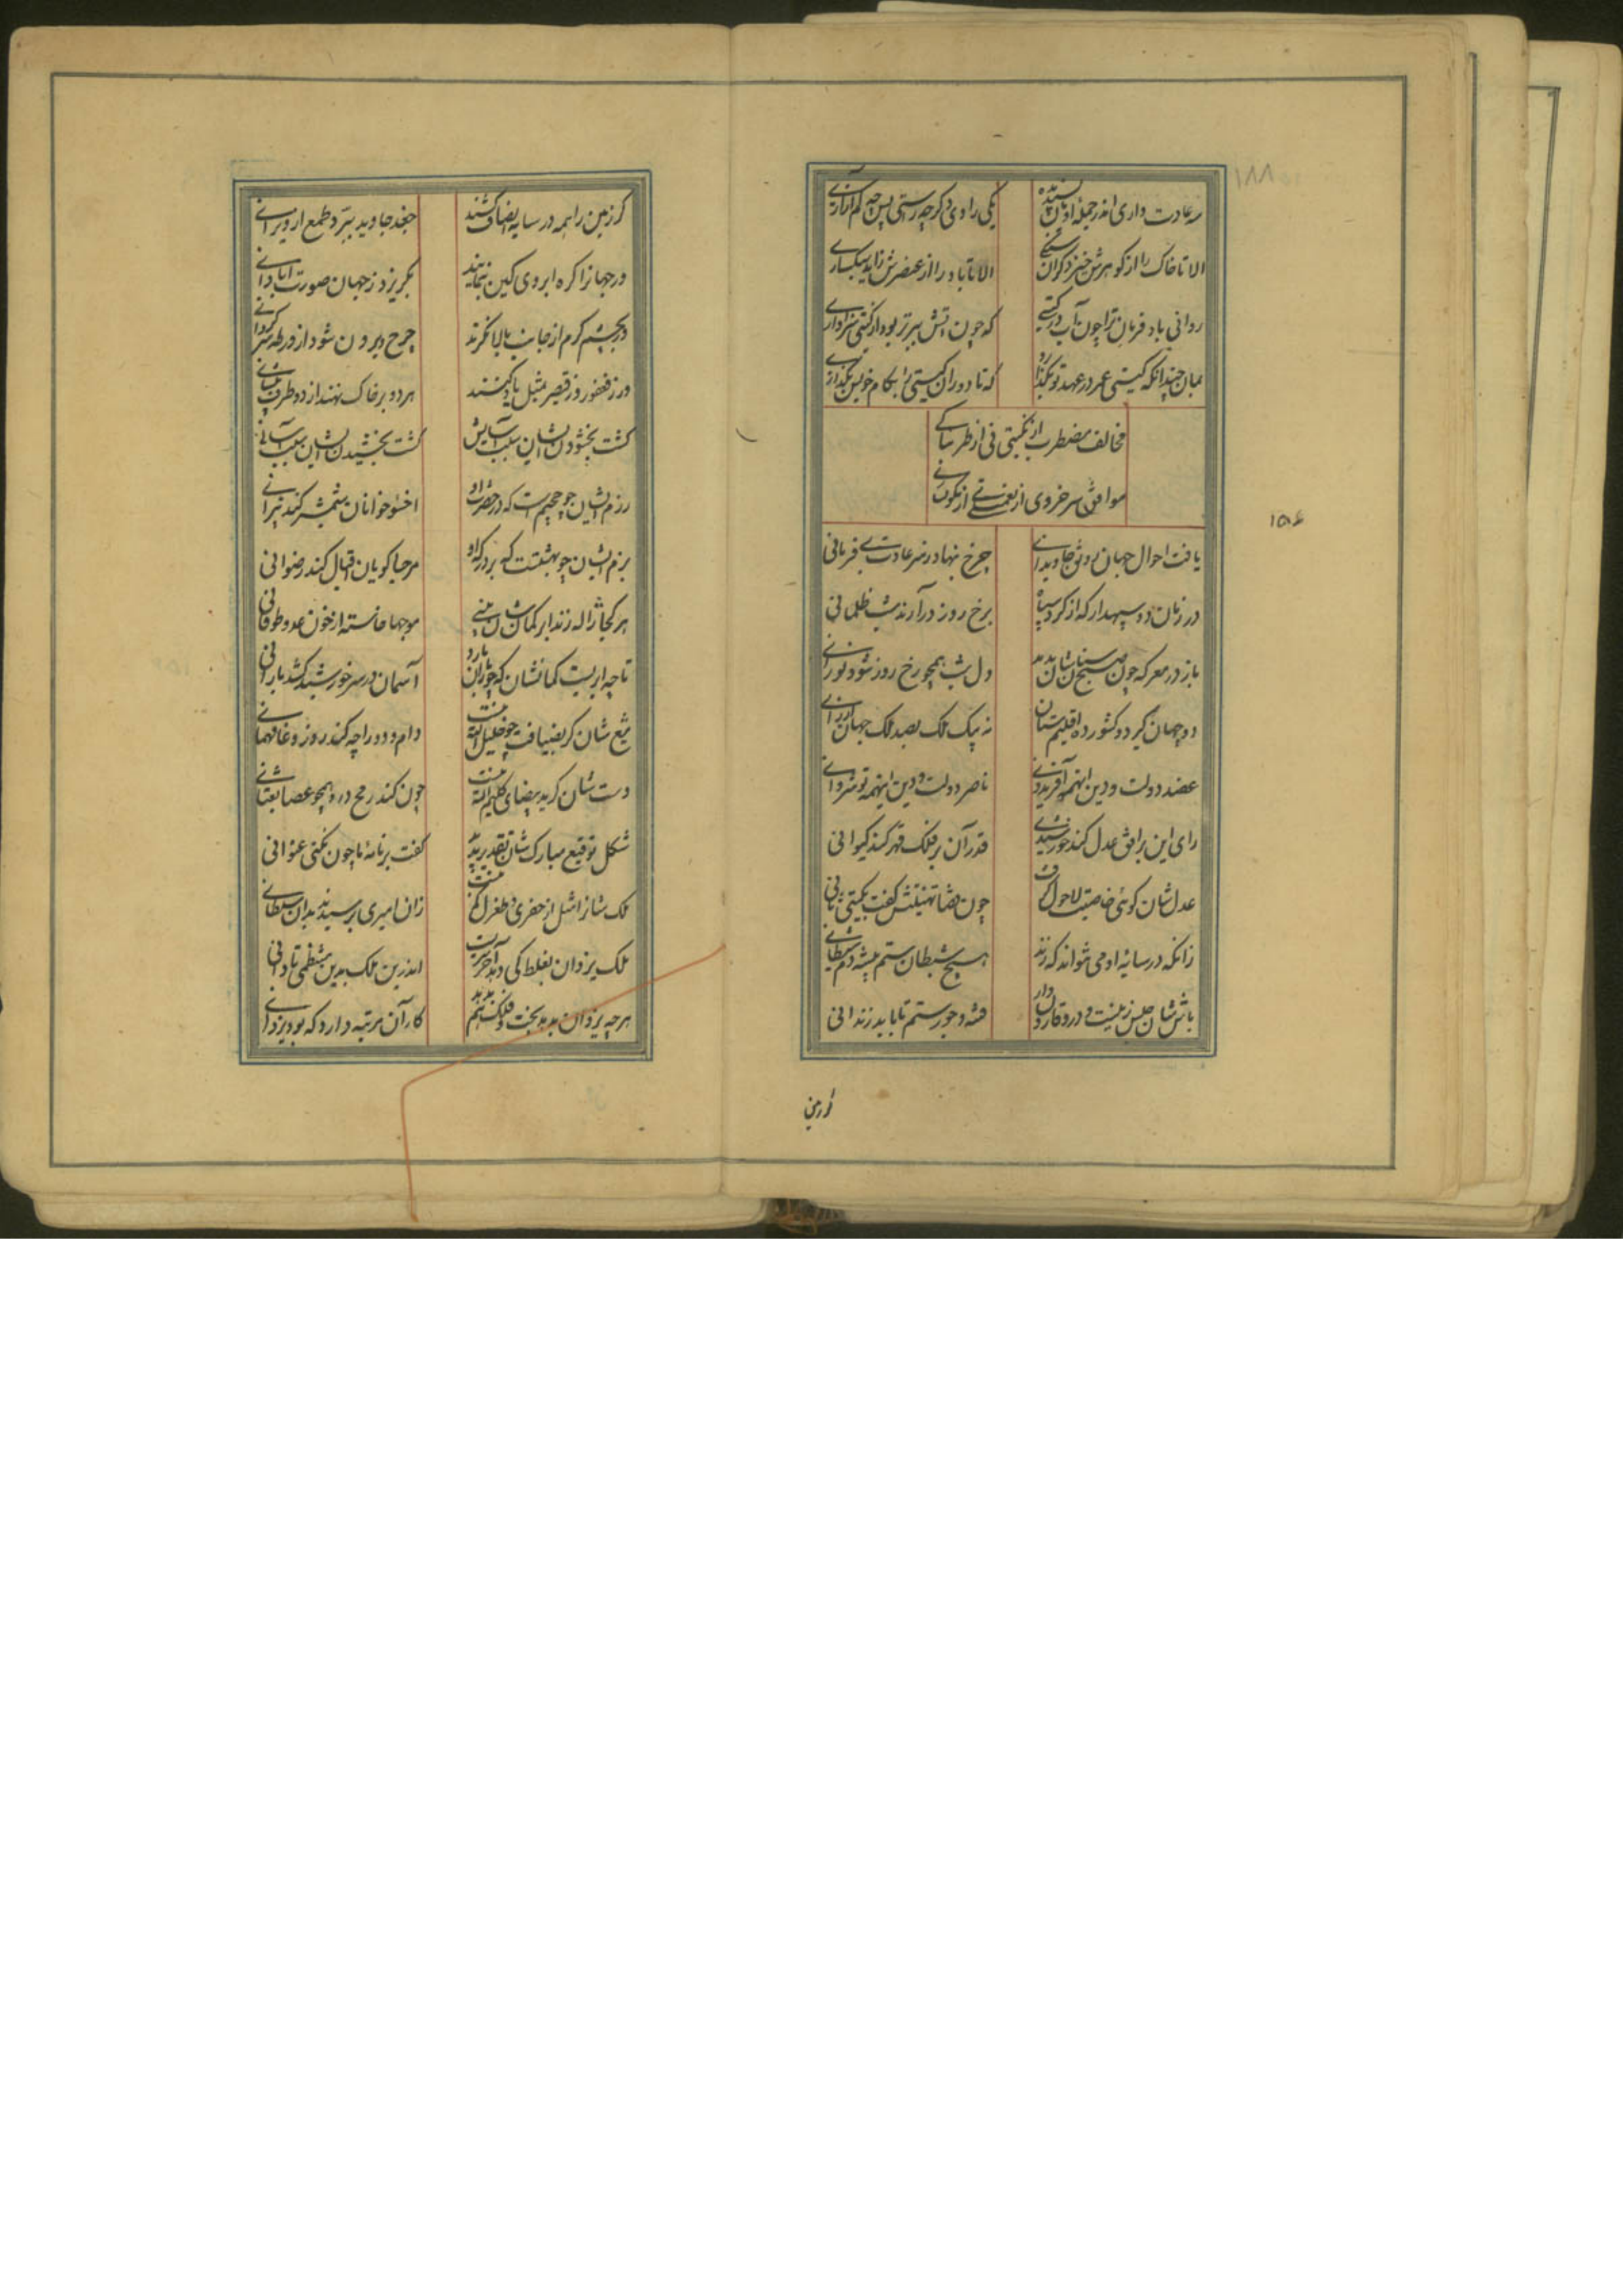 ۱۸۸
سه عادت داری اندر جمله ادیان پسندیده
یکی رادی دگر چه راستی پس چه کم آزاری
الا تا خاک را از کوهرش خیزد کران سنکی
الا تا باد را از عنصرش زاید سبکساری
روانی باد فرمان ترا چون آب در کیتی
که چون آتش ببرتر بودن از کیتی سزاواری
بمان چندانکه کیتی عمر در عهد تو بکذارد
که تا دوران کیتی را بکام خویش بکذاری
مخالف مضطرب از نکبتی نی از طربناکی
موافق سرخ روی از نعمتی نی از نکونساری
۱۵۶
یافت احوال جهان رونق جاویدانی
چرخ بنهاد ز سر عادت بی فرمانی
در زمان دو سپهدار که از کرد سپاه
برخ روز درآرند شب ظلمانی
باز در معرکه چون صبح سنان شان بدمد
دل شب همچو رخ روز شود نورانی
دو جهان کیر دو کشور ده اقلیم ستان
نه بیک ملک بصد ملک جهان ارزانی
عضد دولت و دین اینهمه آفریدونی
ناصر دولت و دین اینهمه نوشروانی
رای این بر افق عدل کند خورشیدی
قدر آن بر فلک قهر کند کیوانی
عدل شان کوئی خاصیت لاحول کرفت
چون قضا تهنیتش کفت بکیتی بانی
زانکه در سایه او می نتواند که زند
هیچ شیطان ستم پیشه دم شیطانی
باس شان حبس زمینست و درو قارون وار
فتنه و جور و ستم تا باید زندانی
کر زمین
کر زمین را همه در سایه انصاف کشند
جغد جاوید ببرد طمع از ویرانی
ور جهان را کره ابروی کین بنمایند
بکریزد ز جهان صورت آبادانی
ور بچشم کرم از جانب بالا نکرند
چرخ بیرون شود از ورطه سرکردانی
ور ز فغفور و ز قیصر بمثل یاد کنند
هر دو بر خاک نهند از دو طرف پیشانی
کشت بخشودن ایشان سبب آسایش
کشت بخشیدن ایشان سبب آسانی
رزم ایشان چو جحیمست که در حضرت او
اخسئوا خوانان شمشیر کند نیرانی
بزم ایشان چو بهشتست که بر درکه او
مرحبا کویان اقبال کند رضوانی
هر کجا ژاله زند ابر کمان شان بینی
موجها خاسته از خون عدو طوفانی
تا چه ابریست کمانشان که چو باران بارد
آسمان در سر خورشید کشد بارانی
تیغ شان کر بضیافت چو خلیل الله نیست
دام و دد را چه کند روز وغا مهمانی
دست شان کر ید بیضای کلیم الله نیست
چون کند رمح درو همچو عصا ثعبانی
شکل توقیع مبارک شان تقدیر بدید
کفت بر نامه ما چون نکنی عنوانی
ملک شان را مثل از جغری و طغرل کم نیست
زان امیری برسیدند بدان سلطانی
ملک یزدان بغلط کی دهد آخر بدست
اندرین ملک بدین منتظمی تا دانی
هرچه یزدان بدهد بخت و فلک هم بدهد
کار آن مرتبه دارد که بود یزدانی